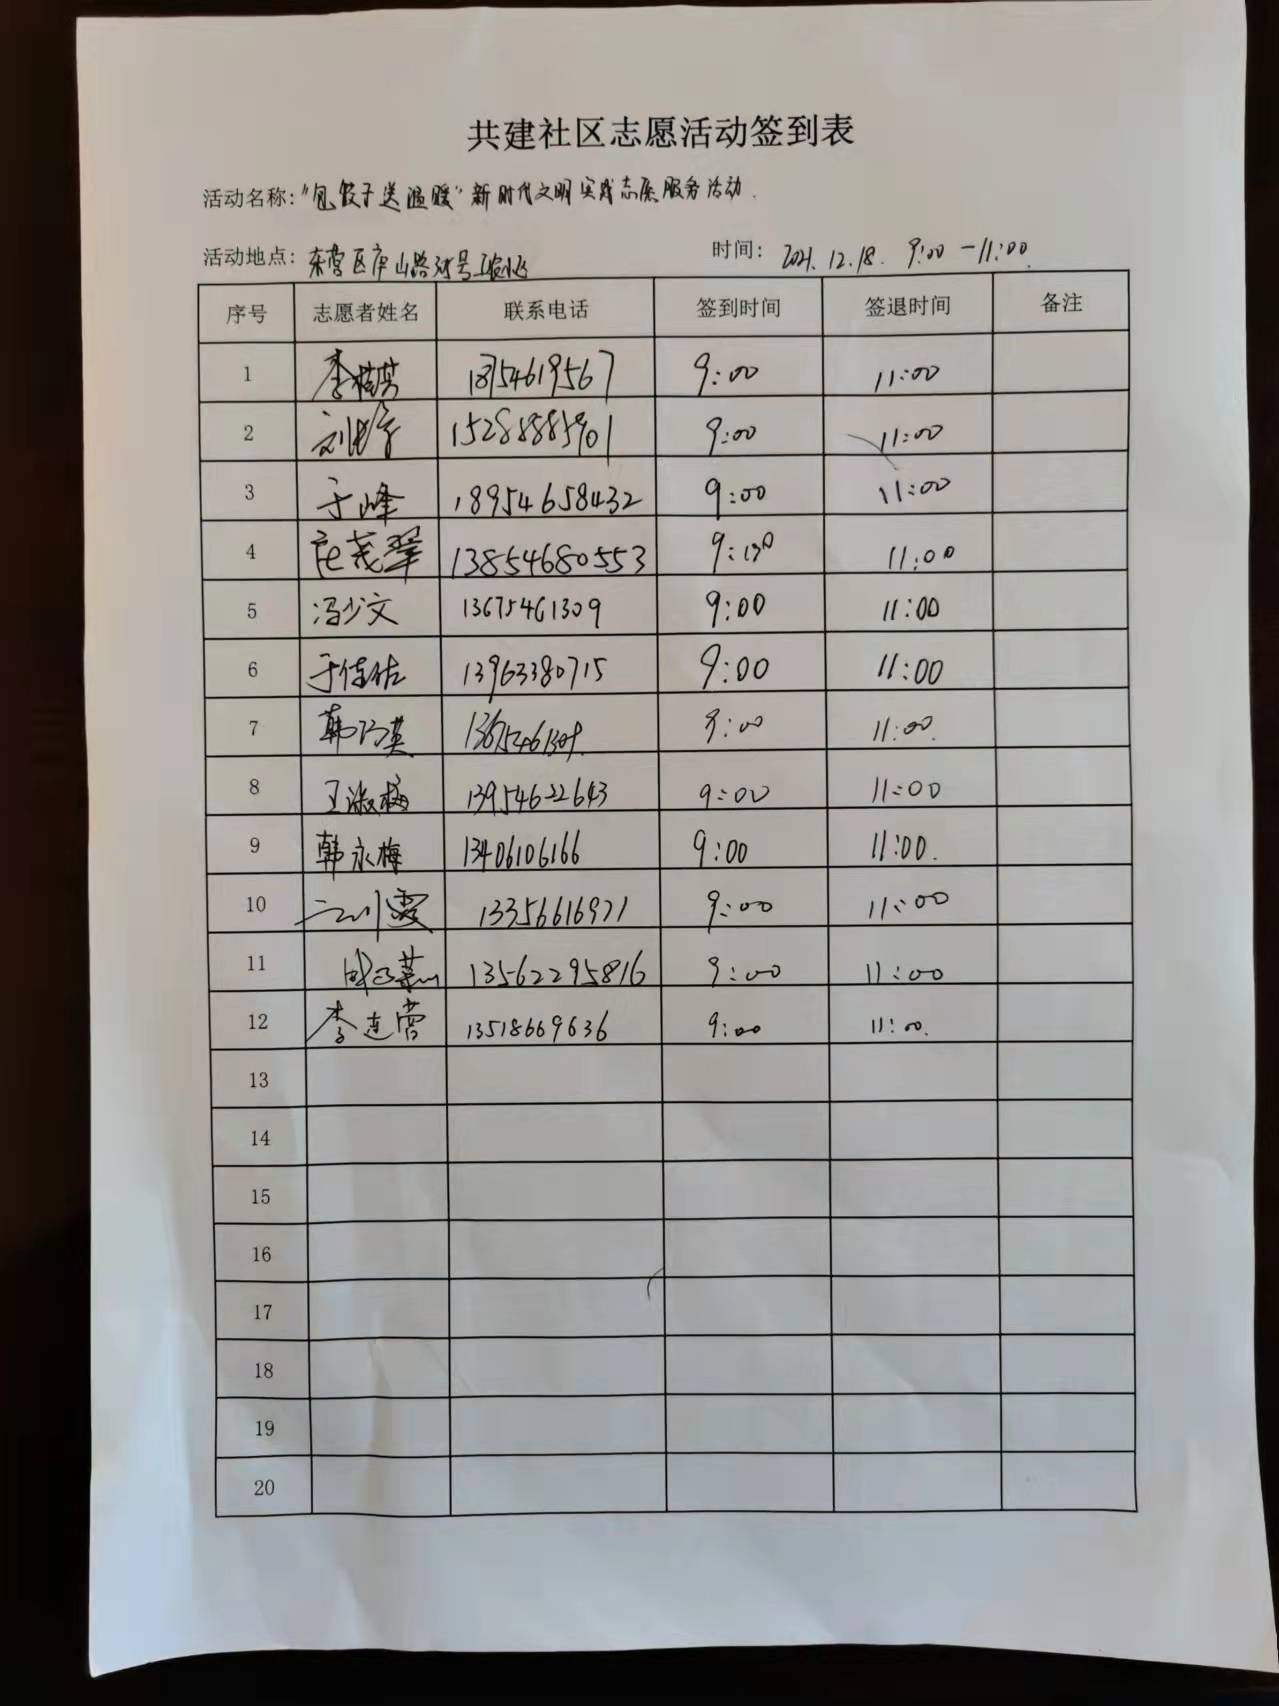 共建社区志愿活动签到表
活动名称："包饺子送温暖"新时代文明实践志愿服务活动.
活动地点：东营区庐山路 号 时间：2021.12.18. 9:00-11:00
序号 志愿者姓名 联系电话 签到时间 签退时间 备注
1 李 9:00 11:00
2 刘 9:00 11:00
3 于峰 18954658432 9:00 11:00
4 庄茂翠 13854680553 9:00 11:00
5 冯少文 13675461309 9:00 11:00
6 于佳佑 13963380715 9:00 11:00
7 韩巧英 9:00 11:00.
8 王淑梅 13954622643 9:00 11:00
9 韩永梅 13406106166 9:00 11:00.
10 霞 13356616971 9:00 11:00
11 13562295816 9:00 11:00
12 李连营 13518669636 9:00 11:00.
13
14
15
16
17
18
19
20